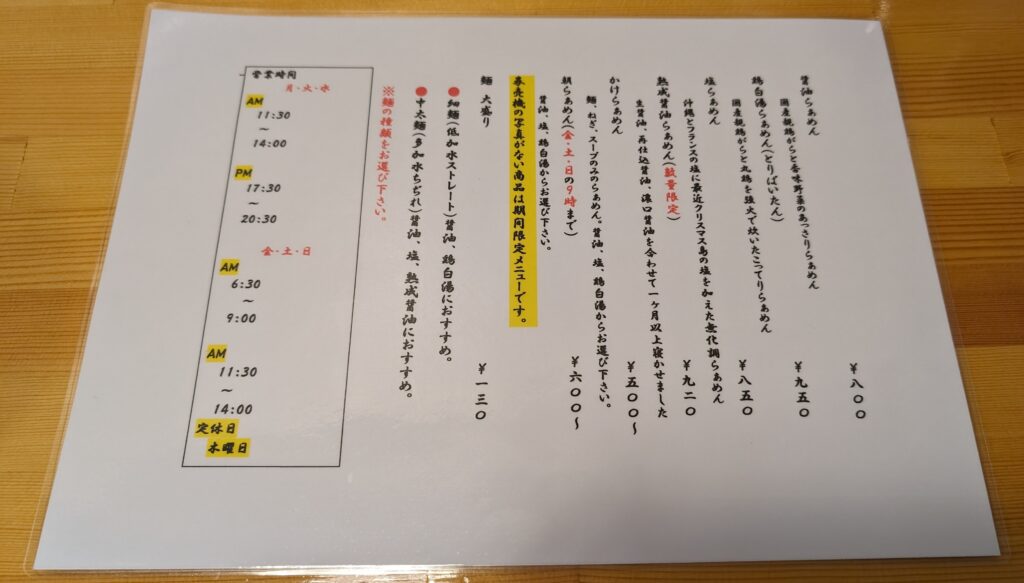 醤油らぁめん ¥八〇〇
国産親鶏がらと香味野菜のあっさりらぁめん
鶏白湯らぁめん(とりぱいたん) ¥九五〇
国産親鶏がらと丸鶏を強火で炊いたこってりらぁめん
塩らぁめん ¥八五〇
沖縄とフランスの塩に最近クリスマス島の塩を加えた無化調らぁめん
熟成醤油らぁめん(数量限定) ¥九二〇
生醤油、再仕込醤油、濃口醤油を合わせて一ヶ月以上寝かせました
かけらぁめん ¥五〇〇〜
麺、ねぎ、スープのみのらぁめん。醤油、塩、鶏白湯からお選び下さい。
朝らぁめん(金・土・日の9時まで) ¥六〇〇〜
醤油、塩、鶏白湯からお選び下さい。
券売機の写真がない商品は期間限定メニューです。
麺 大盛り ¥一三〇
●細麺(低加水ストレート)醤油、鶏白湯におすすめ。
●中太麺(多加水ちぢれ)醤油、塩、熟成醤油におすすめ。
※麺の種類をお選び下さい。
営業時間
月・火・水
AM
11:30
〜
14:00
PM
17:30
〜
20:30
金・土・日
AM
6:30
〜
9:00
AM
11:30
〜
14:00
定休日
木曜日